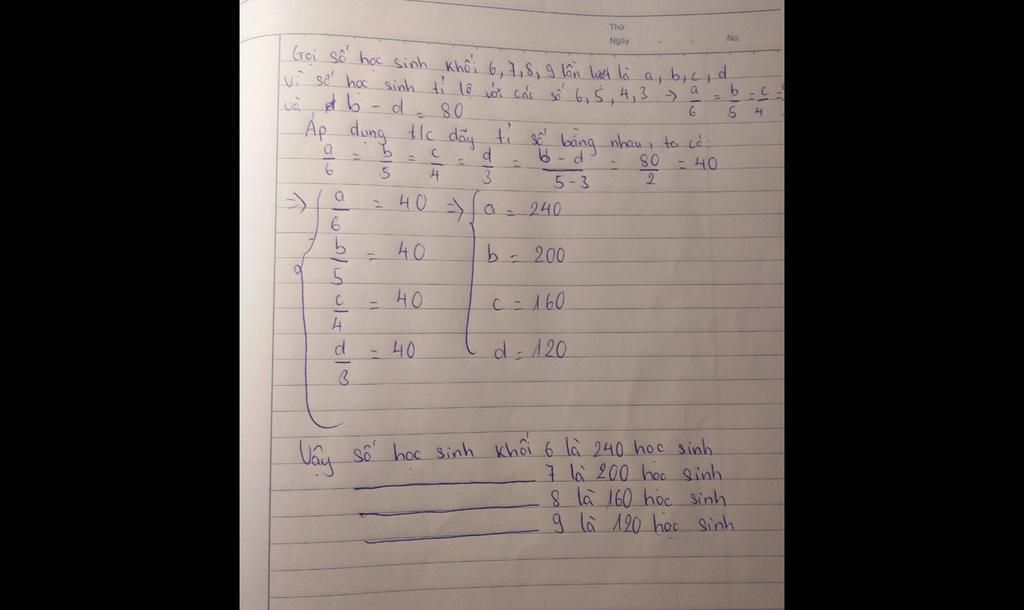 Thứ
Ngày . . No.
Gọi số học sinh khối 6, 7, 8, 9 lần lượt là a, b, c, d
Vì số học sinh tỉ lệ với các số 6, 5, 4, 3 → a/6 = b/5 = c/4 =
và b - d = 80
Áp dụng t/c dãy tỉ số bằng nhau, ta có:
a/6 = b/5 = c/4 = d/3 = b - d/5 - 3 = 80/2 = 40
=> { a/6 = 40 => { a = 240
b/5 = 40 b = 200
c/4 = 40 c = 160
d/3 = 40 d = 120
Vậy số học sinh khối 6 là 240 học sinh
7 là 200 học sinh
8 là 160 học sinh
9 là 120 học sinh